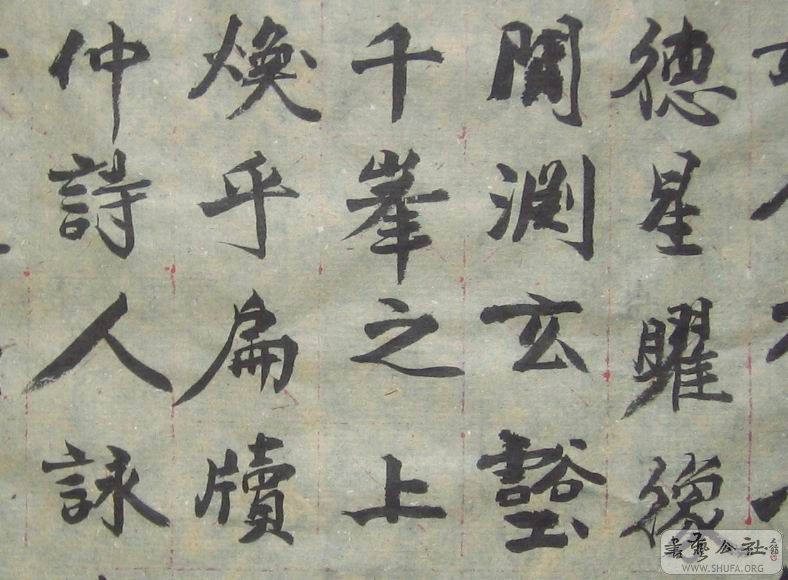 德星曜
淵玄壑
千峯之上
煥乎扁牘
仲詩人詠
書藝公社
WWW.SHUFA.ORG